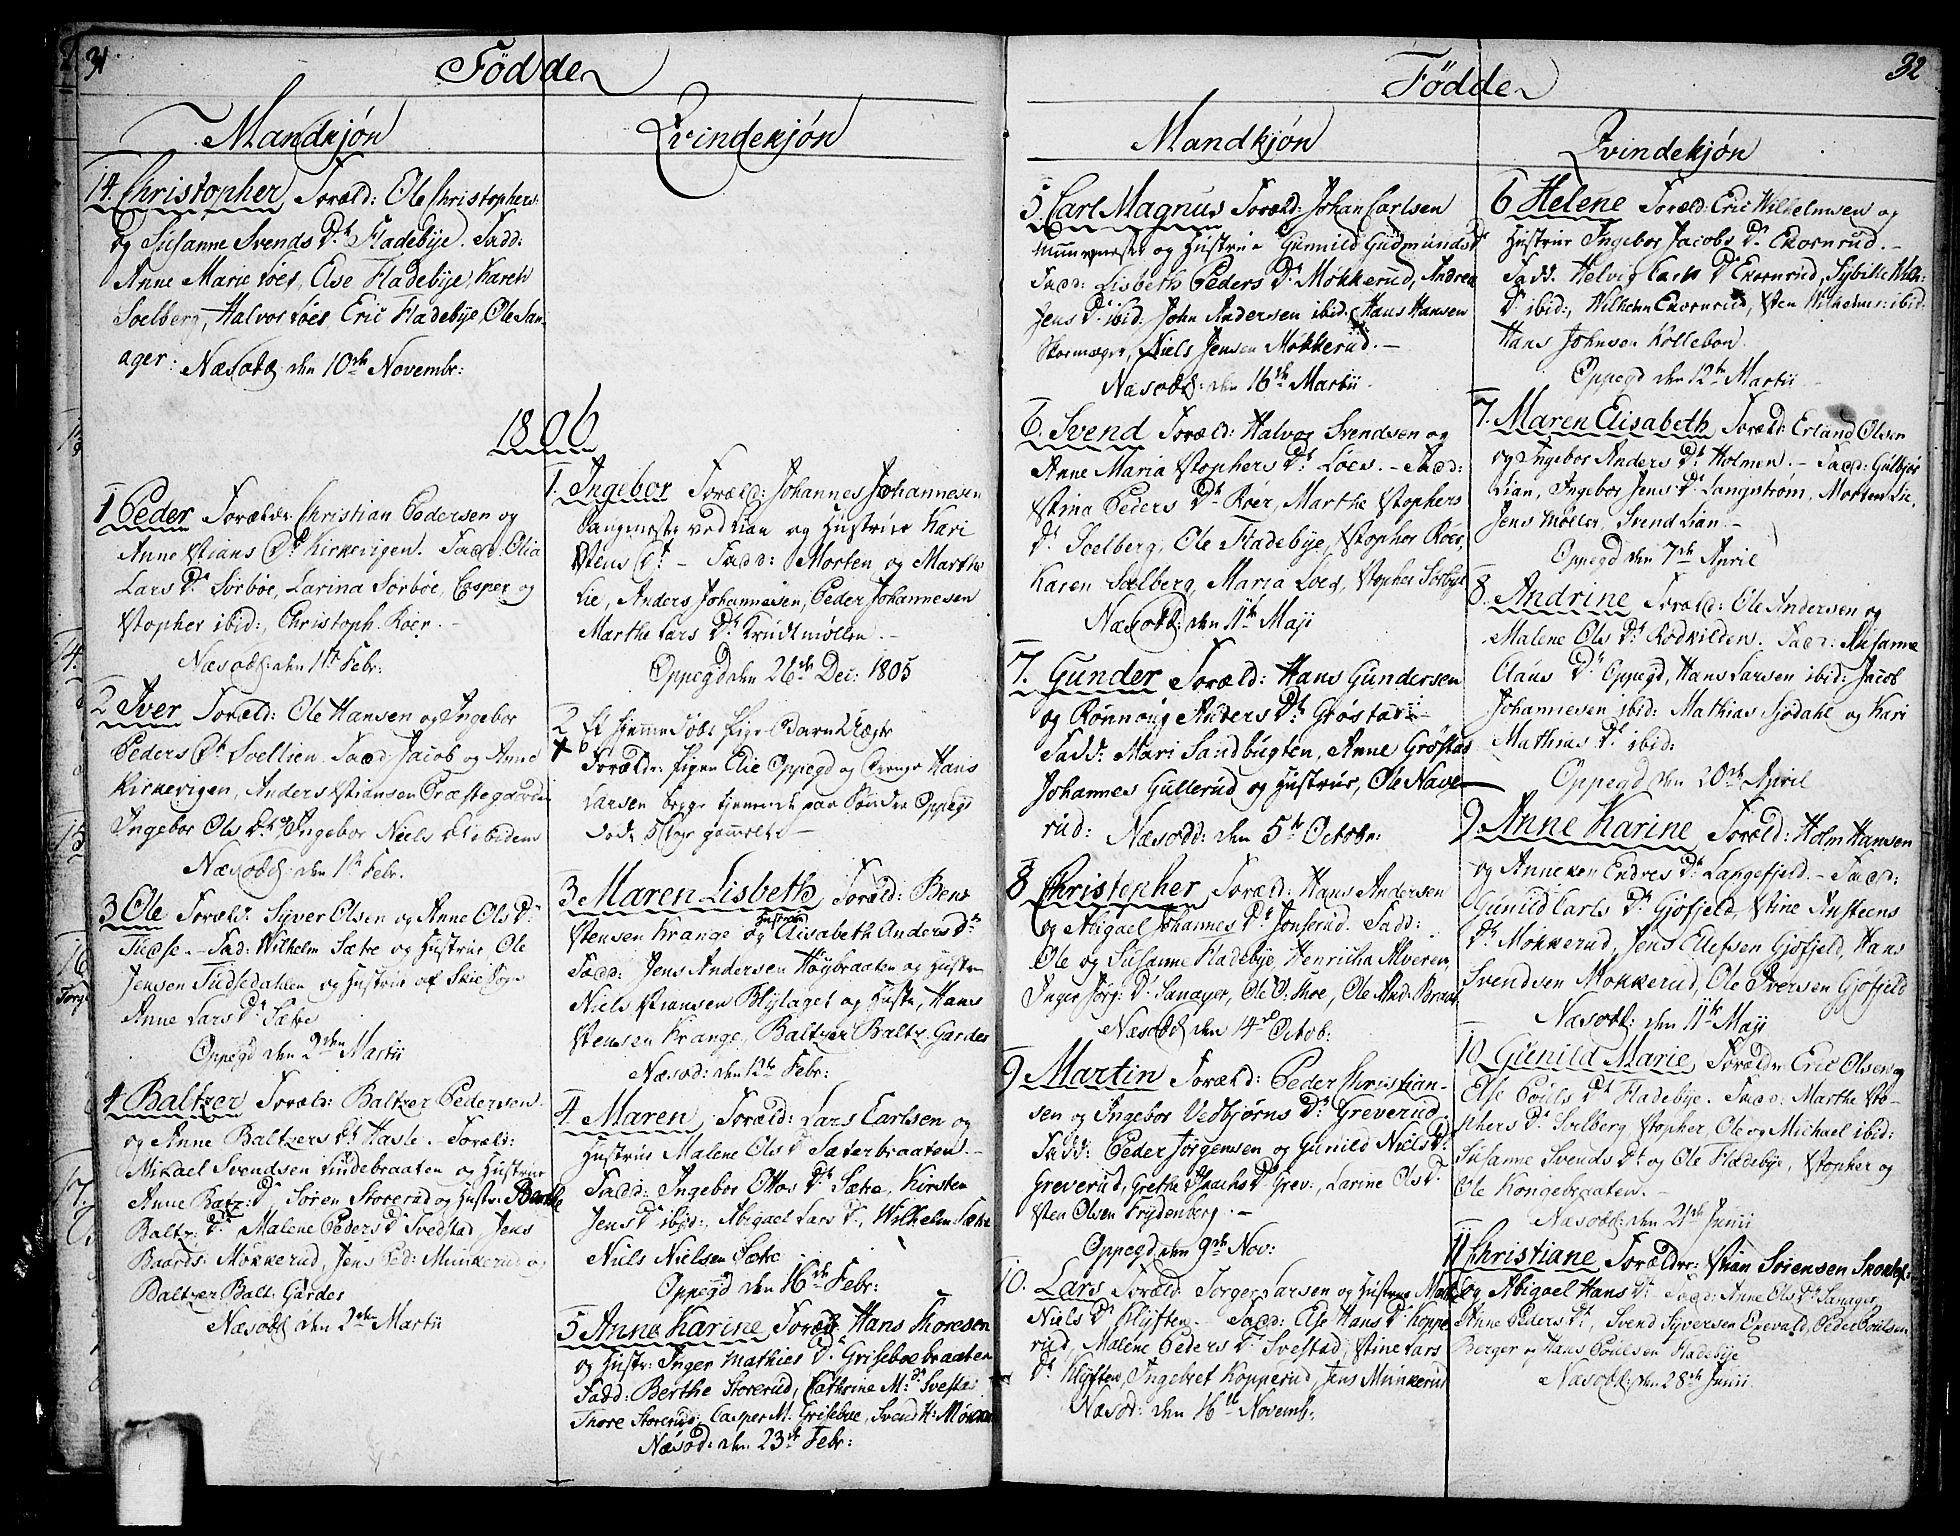 31
Födde
Mandkjön
Qvindekjön
14. Christopher Foræld: Ole Christophers:
og Susanne Svends Dr Fladebÿe. Fadd:
Anne Marie Löes, Else Fladebÿe, Karen
Soelberg, Halvor Löes, Eric Fladebÿe, Ole San-
ager: Næsodd: den 10de Novembr:
1806
1 Peder Forældr: Christian Pedersen og
Anne Xtians Dr Kirkevigen. Fadd: Olia
Lars Dr Sörböe, Larina Sörböe, Casper og
Xstopher ibid:, Christoph. Röer. -
Næsodd: den 1ste Febr:
2 Iver Foræld: Ole Hansen og Ingebor
Peders Dr Soellien. Fadd: Jacob og Anne
Kirkevigen, Anders Xtiansen Præstegaarden
Ingebor Ols Dr og Ingebor Niels Dr ibidem
Næsodd: den 1ste Febr.
3 Ole Foræld: Syver Olsen og Anne Ols Dr
Tudse. - Fad: Wilhelm Sætre og Hustrue, Ole
Jensen Tudsedalen og Hustrue af Skie Sogn
Anne Lars Dr Sætre
Oppegd den 2den Martii
4 Baltzer Foræld: Baltzer Pedersen
og Anne Baltzers Dr Hasle. - Foræld:
Mikael Svendsen Lindebraaten og Hustrue
Anne Batz: Dr Sören Storerud og Hustr: Berthe
Baltz: Dr Malene Peders Dr Svedstad Jens
Baards: Mökkerud, Jens Ped: Munkerud og
Baltzer Balt: Garder
Næsodd den 2den Martii
1. Ingebor Foræld: Johannes Johannesen
Saugmester ved Lian og Hustrue Kari
Stens Dr - Fadd: Morten og Marthe
Lie, Anders Johannesen, Peder Johannesen
Marthe Lars Dr Krudtmöllen. -
Oppegd den 26de Dec: 1805
2 Et hjemmedöbt Pige Barn Uægte
Forældr: Pigen Elie Oppegd og Drenge Hans
Larsen begge tjenende paa Sönder Oppegd
död 5 Dage gammelt. -
3 Maren Lisbeth Foræld: Bent
Stensen Krange og Hustrue Elisabeth Anders Dr
Fadd: Jens Andersen Höybraaten og Hustru
Niels Xtiansen Blylaget og Hustr, Hans
Stensen Krange, Baltzer Baltz: Garder
Næsod: den 12te Febr:
4 Maren Foræld: Lars Carlsen og
Hustrue Malene Ols D Sæterbraaten. -
Fadd: Ingebor Ottos Dr Sætre, Kirsten
Jens D ibid:, Abigael Lars D., Wilhelm Sætre
Niels Nielsen Sætre
Oppegd den 16de Febr:
5 Anne Karine Foræld: Hans Thoresen
og Hustr: Inger Mathies Dr Griseboebraaten
Fadd: Berthe Storerud, Cathrine M: D Svestad
Thore Storerud, Casper M. Griseboe, Svend H: Mökker
Næsod: den 23de Febr:
32
Födde
Mandkjön
Qvindekjön
5. Carl Magnus Foræld: Johan Carlsen
Muurmester og Hustrue Gunnild Gudmunds Dr
Fadd: Lisbeth Peders Dr Mökkerud, Andrea
Jens Dr ibid: John Andersen ibid: Hans Hansen
Skoemager, Niels Jensen Mökkerud. -
Næsodd: den 16de Martii
6. Svend Foræld: Halvor Svendsen og
Anne Maria Xstophers Dr Löes. - Fadd:
Stina Peders Dr Röer, Marthe Xstophers
Dr Soelberg, Ole Fladebÿe, Xstopher Röer,
Karen Soelberg, Maria Löes, Xstopher Sörbye
Næsodd: den 11te Maji
7. Gunder Foræld: Hans Gundersen
og Rönnoug Anders Dr Gröstad -
Fadd: Mari Sandbugten, Anne Gröstad
Johannes Gullerud og Hustrue, Ole Nave-
rud: Næsodd: den 5te Octobr:
8 Christopher Foræld: Hans Andersen
og Abigael Johannes Dr Jonserud. Fadd:
Ole og Susanne Fladebÿe, Henritha Alveren,
Inger Jörg: Dr Sanager, Ole O: Skoe, Ole And: Braat
Næsodd den 14de Octob:
9 Martin Foræld: Peder Christian-
sen og Ingebor Vedbjörns Dr Greverud
Fadd: Peder Jörgensen og Gunild Niels Dr
Greverud, Grethe Isaachs Dr Grev:, Larine Ols D.
Sten Olsen Frydenberg. -
Oppegd den 9de Nov:
10. Lars Foræld: Torger Larsen og Hustrue Marthe
Niels Dr Klyften. - Fadd: Else Hans Dr Koppe-
rud, Malene Peders Dr Svestad, Stine Lars
Dr Klyften, Ingebret Kopperud, Jens Munkerud
Næsod: den 16de Novemb:
6 Helene Foræld: Eric Wilhelmsen og
Hustrue Ingebor Jacobs Dr Ekornrud. -
Fadd: Helvig Lars D Ekornrud, Sybille Wilh:
Dr ibid:, Wilhelm Ekornrud, Sten Wilhelms: ibid
Hans Johnsen Kollebon.
Oppegd den 12te Martii
7. Maren Elisabeth Foræld: Erland Olsen
og Ingebor Anders Dr Holmen. - Fadd: Gulbjör
Lian, Ingebor Jens Dr Langström, Morten Lie,
Jens Möller, Svend Lian. -
Oppegd den 7de April
8. Andrine Foræld: Ole Andersen og
Malene Ols Dr Rödkilden. Fadd: Susanne
Claus Dr Oppegd, Hans Larsen ibid: Jacob
Johannesen ibid: Mathias Sjödahl og Kari
Mathias Dr ibid:
Oppegd den 20de April
9. Anne Karine Foræld: Holm Hansen
og Anneken Endres Dr Langefjeld. - Fadd:
Gunild Carls Dr Gjöfjeld, Stine Austeens
Dr Mökkerud, Jens Ellefsen Gjöfjeld, Hans
Svendsen Mökkerud, Ole Iversen Gjöfjeld
Næsodd: den 11te Maji
10 Gunild Marie Foræld: Eric Olsen og
Else Pouls Dr Fladebÿe. Fadd: Marthe Xsto-
phers Dr Soelberg Xstopher, Ole og Michael ibid:
Susanne Svends Dr og Ole Fladebÿe, Xstopher og
Ole Kongebraaten. -
Næsodd: den 21de Junii
11 Christiane Forældre: Xtian Sörensen
og Abigael Hans Dr - Fadd: Anne Ols Dr Sanager,
Anne Peders Dr, Svend Syversen Enevald, Peder Poulsen
Berger og Hans Poulsen Fladebÿe
Næsodd: den 28de Junii